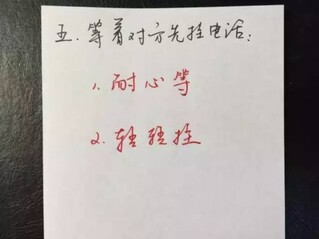 五.等着对方先挂电话：
1.耐心等
2.轻轻挂